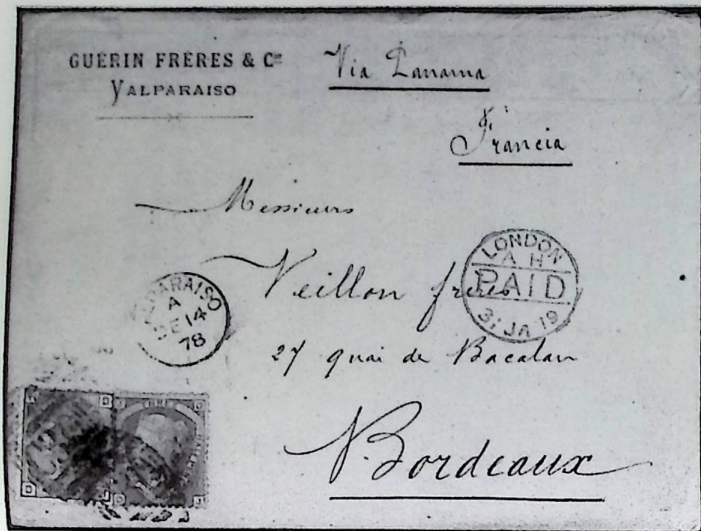 GUÉRIN FRÈRES & Cie
VALPARAISO
Via Panama
Francia
Messieurs
Veillon frères
27 quai de Bacalan
Bordeaux
VALPARAISO
A
DE 14
78
LONDON
A H
PAID
31 JA 19